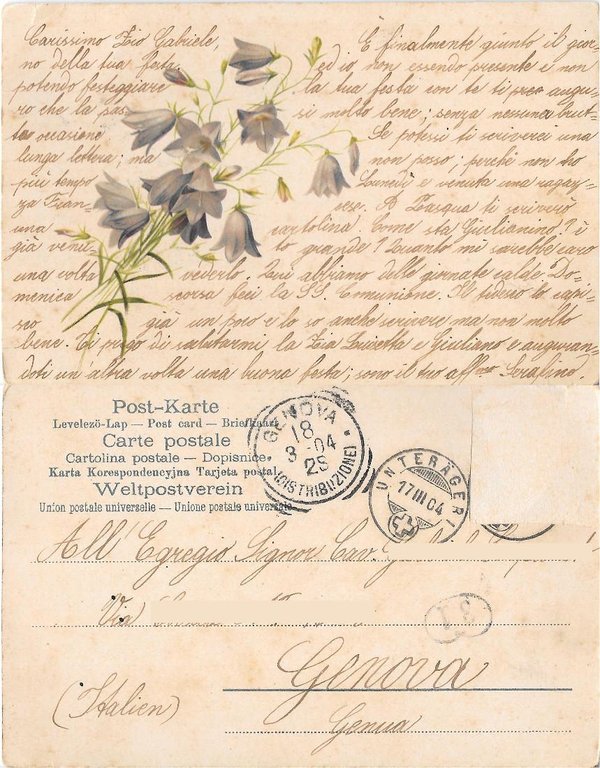 Carissimo Zio Gabriele, È finalmente giunto il gior-
no della tua festa ed io non essendo presente e non
potendo festeggiare la tua festa con te ti prego augu-
ro che la pas- si molto bene; senza nessuna brut-
ta occasione Se potessi ti scriverei una
lunga lettera; ma non posso; perchè non ho
più tempo Lunedì è venuta una ragaz-
za Fran- cese. A Pasqua ti scriverò
una cartolina. Come sta Giulianino? è
già venu- to grande? Quanto mi sarebbe caro
una volta vederlo. Qui abbiamo delle giornate calde Do-
menica scorsa feci la SS. Comunione. Il tedesco lo capi-
sco già un poco e lo so anche scrivere ma non molto
bene. Ti prego di salutarmi la Zia e Giuliano e auguran-
doti un'altra volta una buona festa; sono il tuo aff.mo Serafino.
Post-Karte
Levelező-Lap — Post card — Briefkaart
Carte postale
Cartolina postale — Dopisnice
Karta Korespondencyjna Tarjeta postal
Weltpostverein
Union postale universelle — Unione postale universale
GENOVA
18
3-04
2S
(DISTRIBUZIONE)
UNTERÄGERI
17 III 04
All' Egregio Signor Cav.
Via
Genova
(Italien) Genua